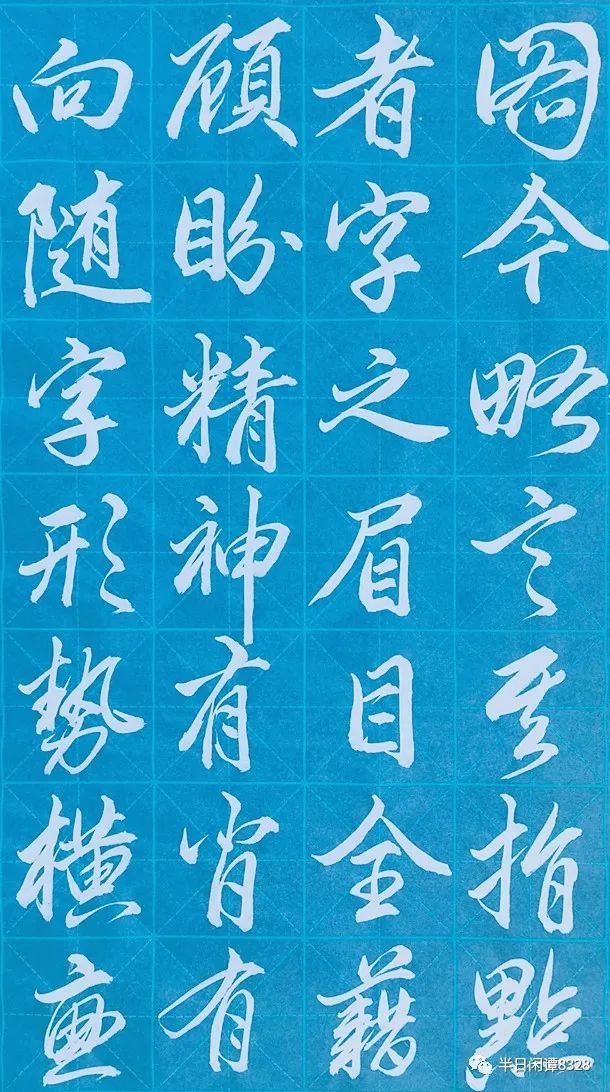 圖今略言其指點
者字之眉目全藉
顧盼精神有背有
向随字形勢橫直
半日闲谭8328